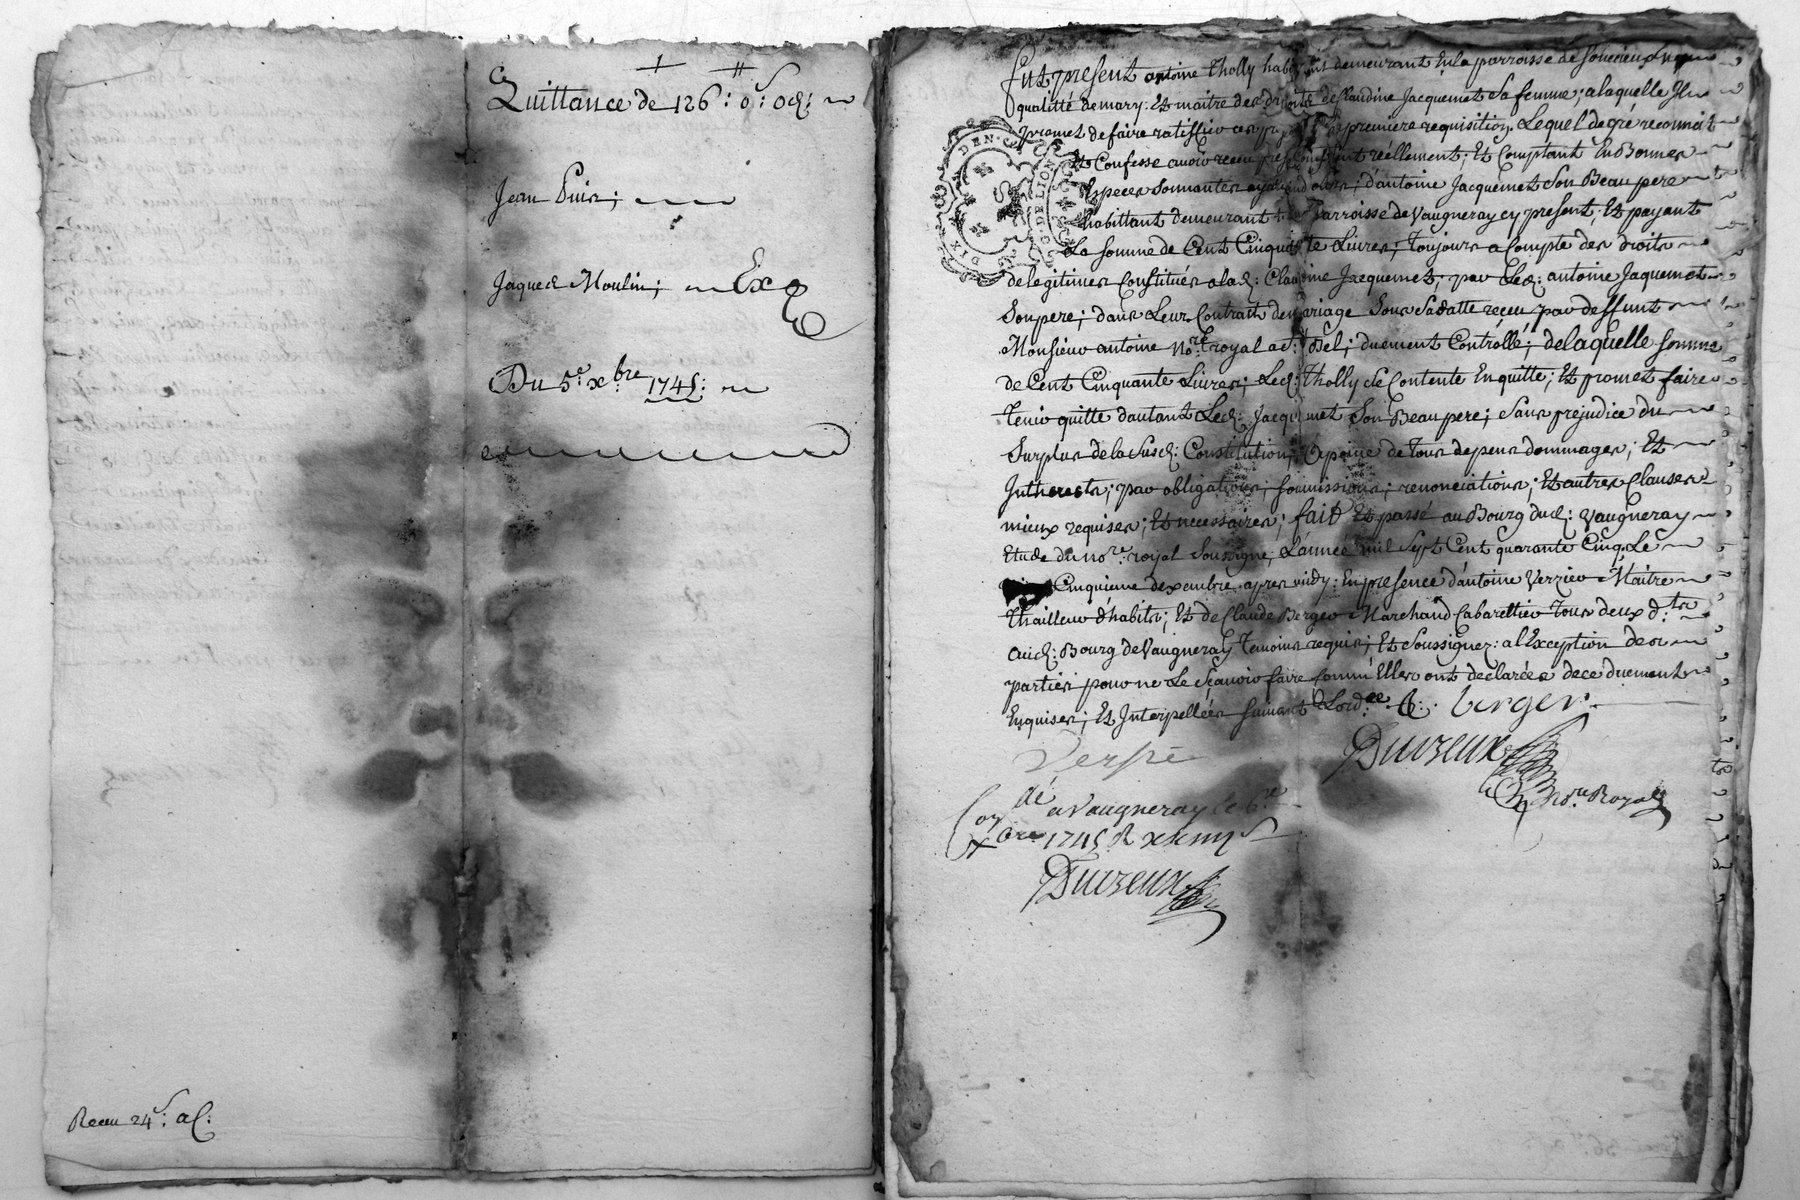 Quittance de 126 ₶: 0 s: 0 d:
Jean Puis;
Jaques Moulin; Ex
Du 5e. xbre 1745:
Receu 24 s: a C:
DIX DEN. G. DE LION
fut present antoine Tholly habitant demeurant En la parroisse de
qualitté de mary: Et maitre des droits de Claudine Jacquemet Sa femme; a laquelle Il
promet de faire ratiffier ces premiere requisition. Lequel de gré reconnoit
Et Confesse avoir receu presentement réellement; Et Comptant En Bonnes
Especes Sonnantes d'antoine Jacquemet Son Beau pere
habittant demeurant parroisse de Vaugneray cy present; Et payant
La Somme de Cent Cinquante Livres; Toujours a Compte des droits
de legitimes Constitués a lad: Claudine Jacquemet, par led: antoine Jaquemet
Son pere; dans Leur Contrait de mariage Sous Sa datte receu par deffunt
Monsieur antoine Nore. royal duement Contrôllé; de laquelle Somme
de Cent Cinquante Livres; Led: Tholly Se Contente En quitte; Et promet faire
Tenir quitte d'autant Led: Jacquemet Son Beau pere; Sans prejudice du
Surplus de la Susd: Constitution; a peine de Tous depens dommages; Et
Inthérests; par obligations; soumissions; renonciations; Et autres Clauses
mieux requises; Et necessaires; fait Et passé au Bourg dud: Vaugneray
Etude du nore. royal Soussigné; L'année mil Sept Cent quarante Cinq Le
Cinquieme decembre apres midy: En presence d'antoine Verrier Maitre
Thailleur d'habits; Et de Claude Berger Marchand Cabarettier Tous deux
aud: Bourg de Vaugneray Temoins requis; Et Soussignez: a l'Exception des
parties pour ne Le Sçavoir faire Comm' Elles ont declarées de ce duement
Enquises; Et Interpellées Suivant L'ordce. berger
Duvzeux
Nore Royal
a Vaugneray le 6e
xbre 1745 R
Duvzeux